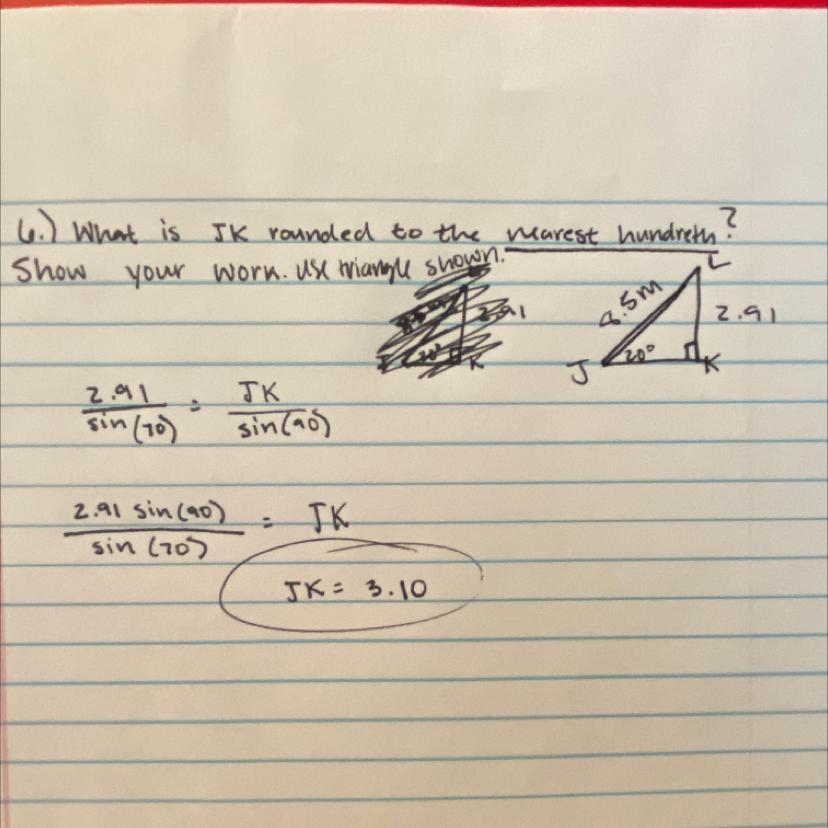 6.) What is JK rounded to the nearest hundreth?
Show your work. Use triangle shown.
L
8.5m
2.91
J
20°
K
2.91
K
2.91 / sin(70) = JK / sin(90)
2.91 sin(90) / sin(70) = JK
JK = 3.10